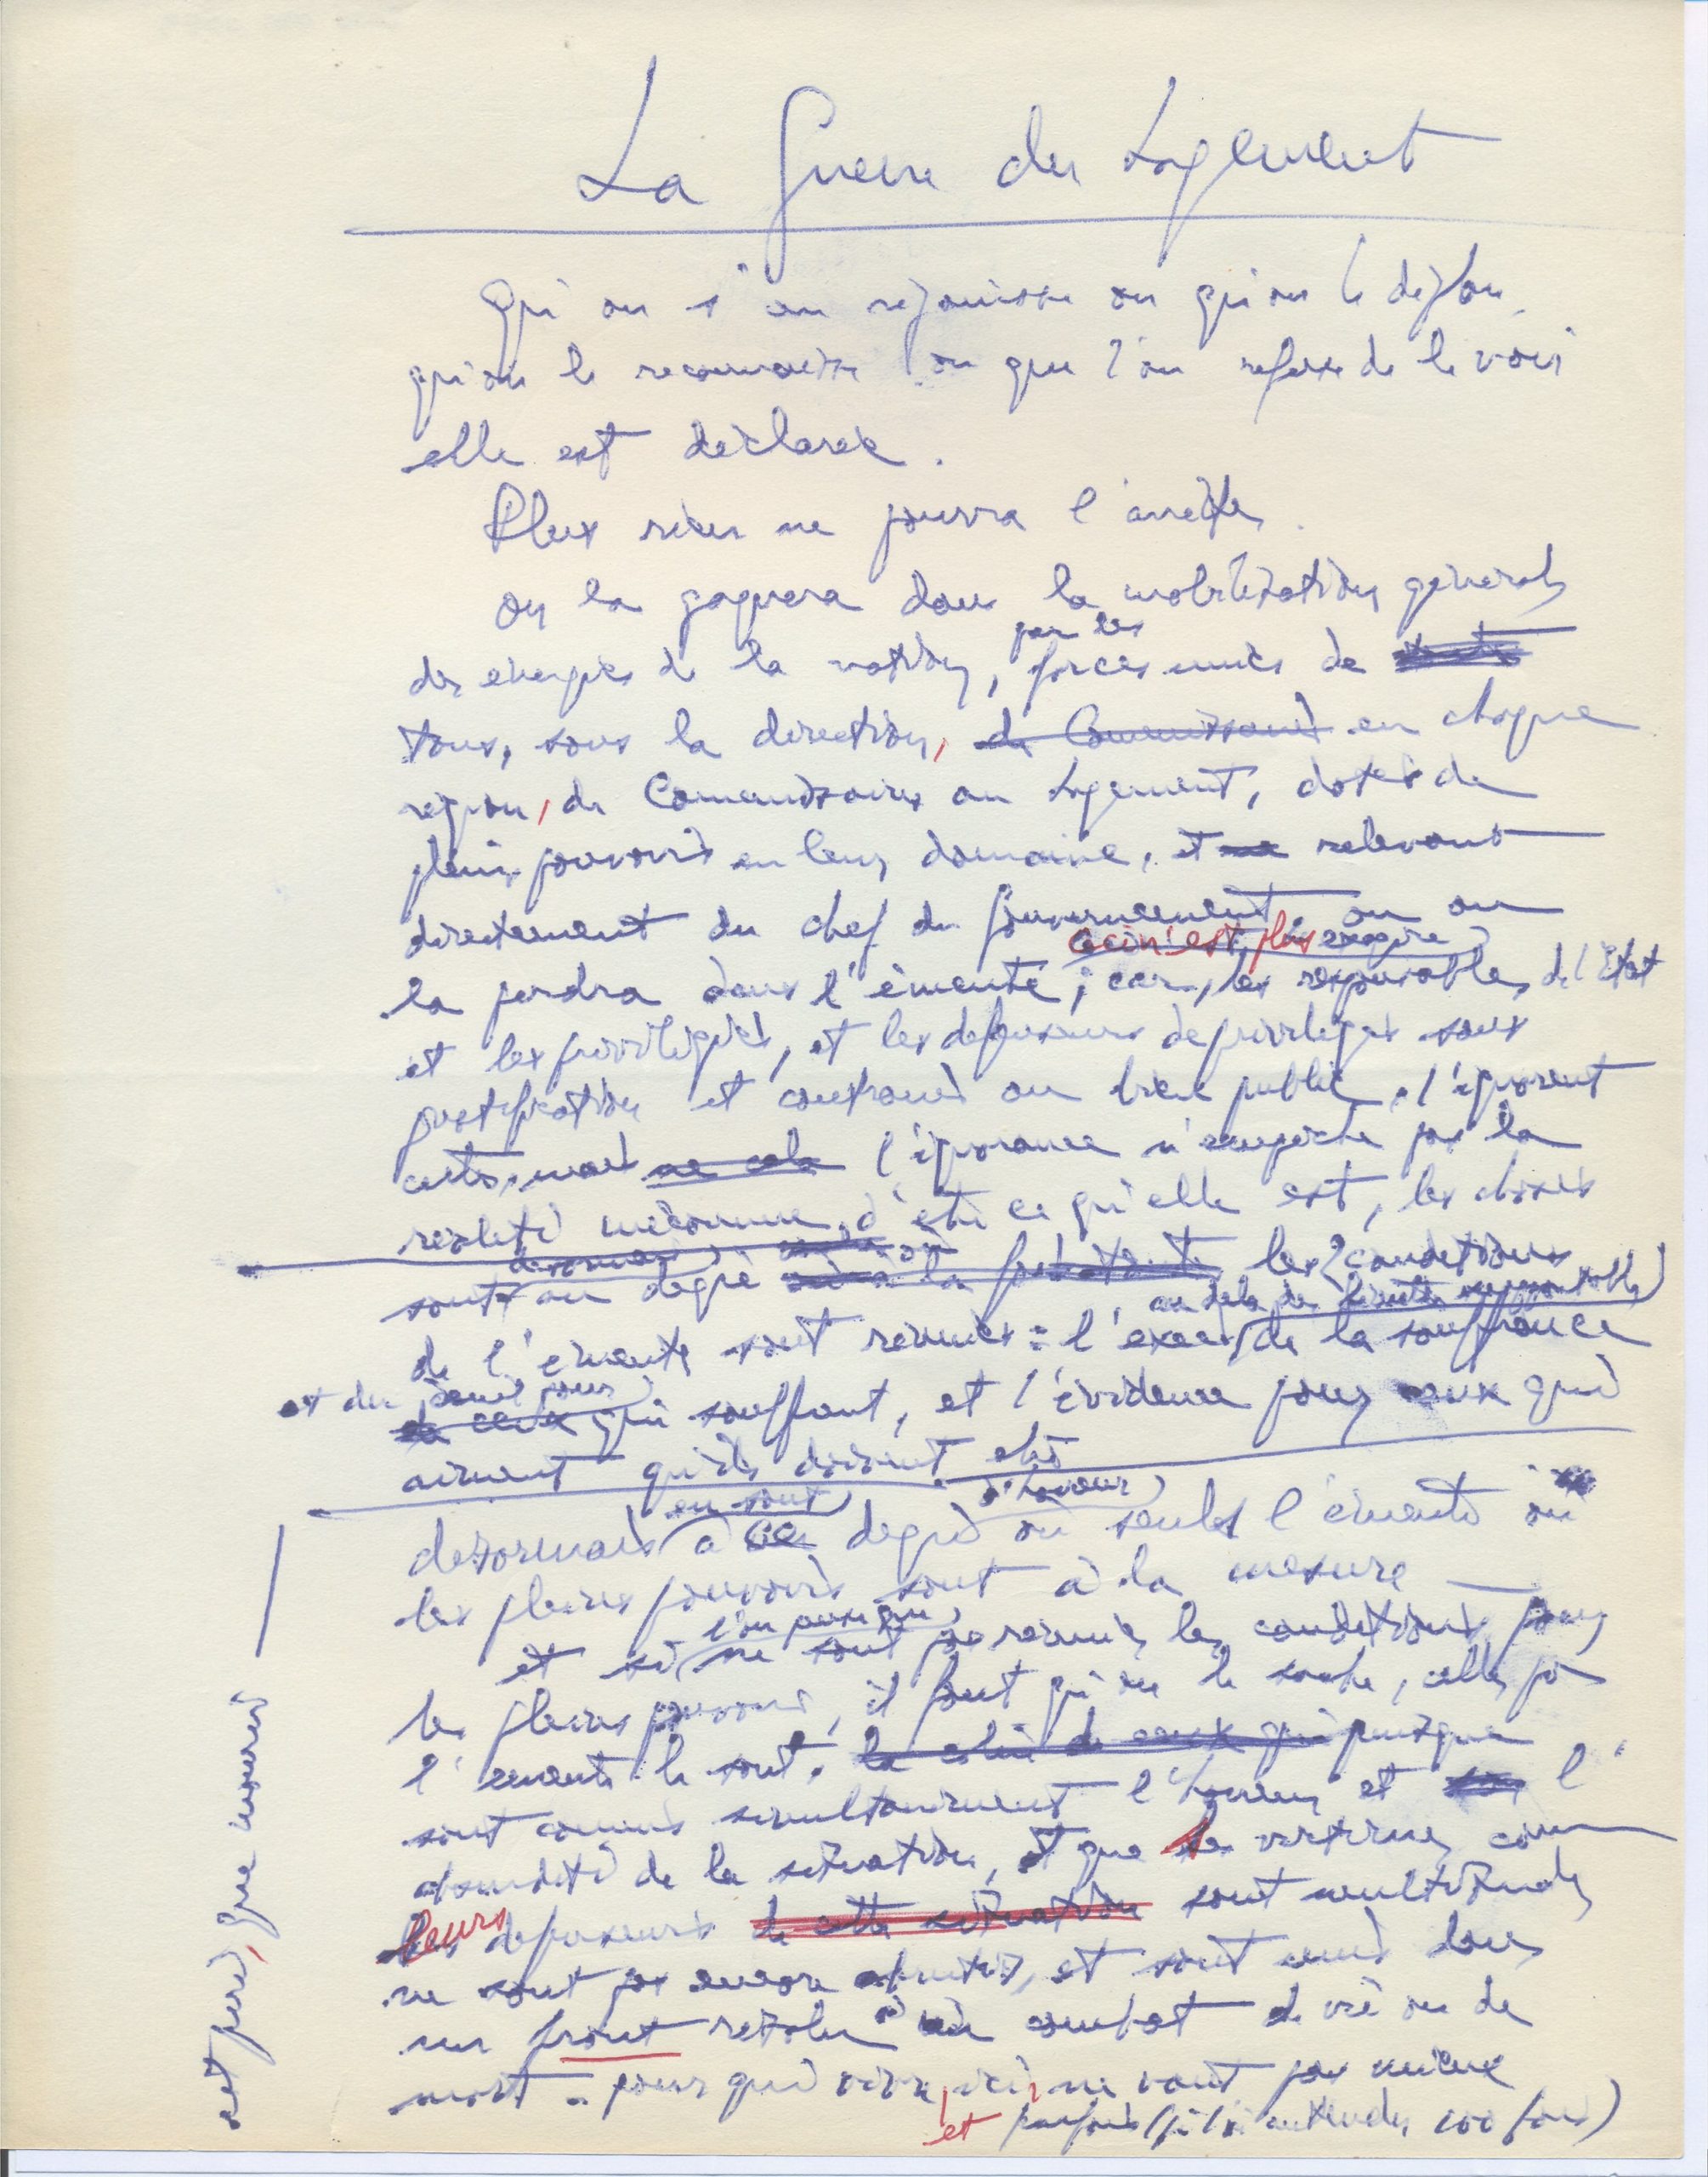 La Guerre du Logement
Qu'on s'en rejouisse ou qu'on le deplore
qu'on le reconnaisse ou que l'on refuse de le voir
elle est déclarée.
Plus rien ne pourra l'arrêter.
On la gagnera dans la mobilisation générale
par les
des energies de la nation, forces unies de
tous, sous la direction, de Commissaires en chaque
region, de Commissaires au Logement, dotés de
pleins pouvoirs en leur domaine, et relevant
directement du chef du Gouvernement, ou on
ceci n'est plus
la perdra dans l'émeute ; car, les responsables de l'Etat
et les privilégiés, et les defenseurs de privileges sans
justification et contraires au bien public, l'ignorent
certes, mais ne cela l'ignorance n'empeche pas la
réalité méconnue, d'être ce qu'elle est, les choses
désormais
sont au degré où la les conditions
au dela des limites supportables
de l'émeute sont réunies : l'exces de la souffrance
et du pour
de ceux qui souffrent, et l'évidence pour ceux qui
aiment qu'ils doivent être
en sont d'horreur
desormais à ce degré où seules l'émeute ou
les pleins pouvoirs sont à la mesure
l'on pense que
et si ne sont pas reunies les conditions pour
les pleins pouvoirs, il faut qu'on le sache, celles pr
l'emeute le sont, la de ceux qui puisque
sont connus simultanément l'horreur et l'
absurdité de la situation, et que les victimes, comme
leurs defenseurs de cette situation sont multitudes
ne sont pas encore abrutis, et sont unis dans
un front résolu à un combat de vie ou de
mort - pour qui vivre ici, ne vaut pas mieux
et parfois (je l'ai entendu, 100 fois)
est pire, que mourir